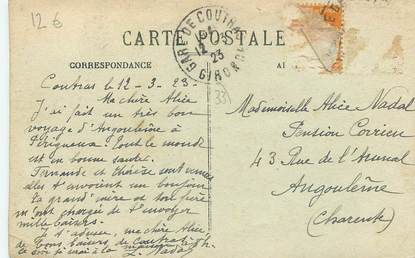 12 €
CARTE POSTALE
GARE DE COUTRAS
12
23
GIRONDE
CORRESPONDANCE
Coutras le 12-3-23-
Ma chère Alice
J'ai fait un très bon
voyage d'Angoulême à
Périgueux tout le monde
est en bonne santé.
Fernande et
elles t'envoient un bonjour
la grand'mère et son
m'ont chargée de t'envoyer
mille baisers.
ma chère Alice,
de bons baisers de
L. Nadal
331
Mademoiselle Alice Nadal
Pension
43 Rue de l'Arsenal
Angoulême
(Charente)